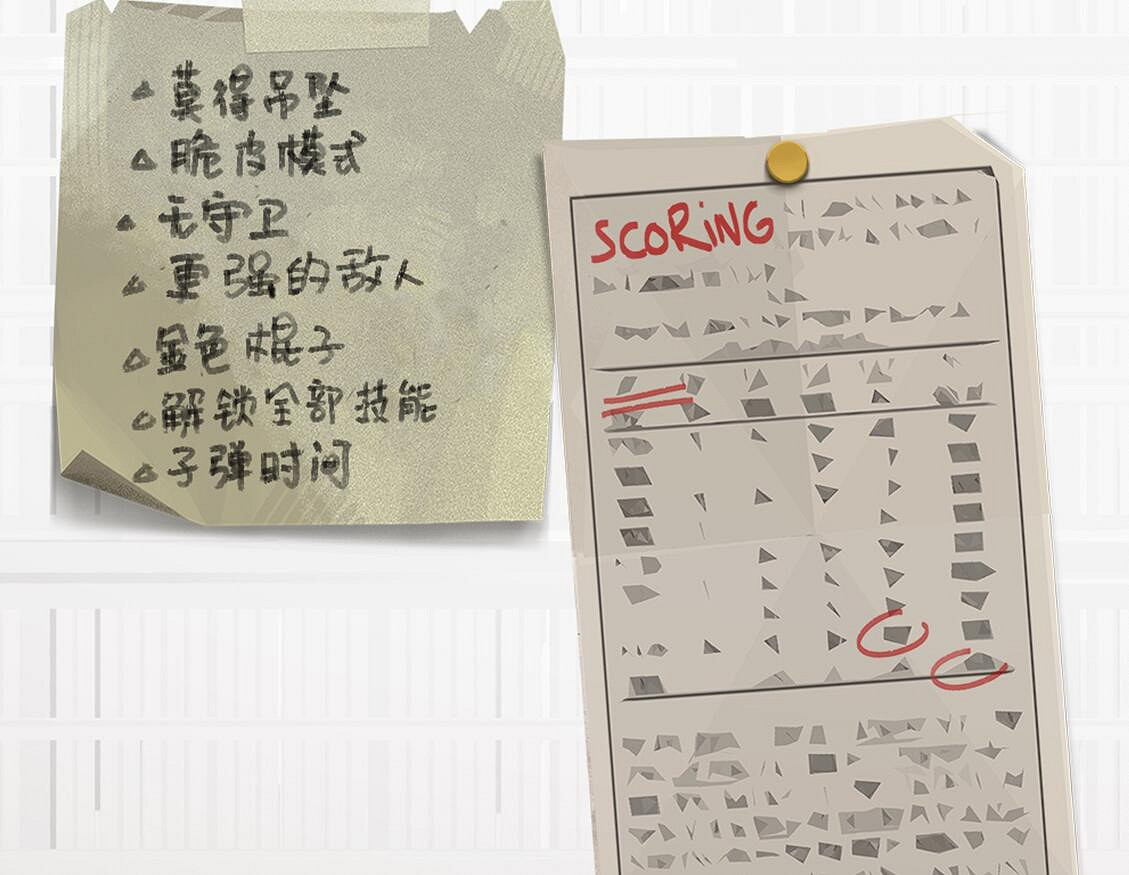 莫得吊坠
脆皮模式
无守卫
更强的敌人
金色棍子
解锁全部技能
子弹时间
SCORiNG